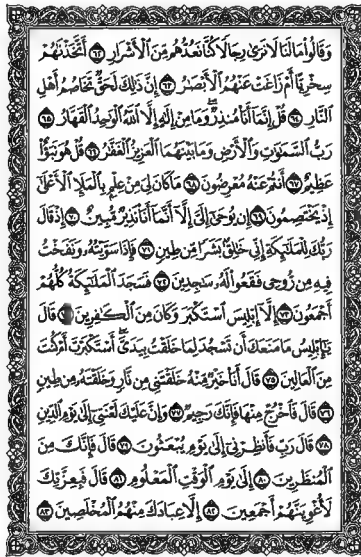 وَقَالُوا۟ مَا لَنَا لَا نَرَىٰ رِجَالًا كُنَّا نَعُدُّهُم مِّنَ ٱلْأَشْرَارِ ٦٢ أَتَّخَذْنَٰهُمْ
سِخْرِيًّا أَمْ زَاغَتْ عَنْهُمُ ٱلْأَبْصَٰرُ ٦٣ إِنَّ ذَٰلِكَ لَحَقٌّ تَخَاصُمُ أَهْلِ
ٱلنَّارِ ٦٤ قُلْ إِنَّمَآ أَنَا۠ مُنذِرٌ وَمَا مِنْ إِلَٰهٍ إِلَّا ٱللَّهُ ٱلْوَٰحِدُ ٱلْقَهَّارُ ٦٥
رَبُّ ٱلسَّمَٰوَٰتِ وَٱلْأَرْضِ وَمَا بَيْنَهُمَا ٱلْعَزِيزُ ٱلْغَفَّٰرُ ٦٦ قُلْ هُوَ نَبَؤٌا۟
عَظِيمٌ ٦٧ أَنتُمْ عَنْهُ مُعْرِضُونَ ٦٨ مَا كَانَ لِىَ مِنْ عِلْمٍۭ بِٱلْمَلَإِ ٱلْأَعْلَىٰٓ
إِذْ يَخْتَصِمُونَ ٦٩ إِن يُوحَىٰٓ إِلَىَّ إِلَّآ أَنَّمَآ أَنَا۠ نَذِيرٌ مُّبِينٌ ٧٠ إِذْ قَالَ
رَبُّكَ لِلْمَلَٰٓئِكَةِ إِنِّى خَٰلِقٌۢ بَشَرًا مِّن طِينٍ ٧١ فَإِذَا سَوَّيْتُهُۥ وَنَفَخْتُ
فِيهِ مِن رُّوحِى فَقَعُوا۟ لَهُۥ سَٰجِدِينَ ٧٢ فَسَجَدَ ٱلْمَلَٰٓئِكَةُ كُلُّهُمْ
أَجْمَعُونَ ٧٣ إِلَّآ إِبْلِيسَ ٱسْتَكْبَرَ وَكَانَ مِنَ ٱلْكَٰفِرِينَ قَالَ
يَٰٓإِبْلِيسُ مَا مَنَعَكَ أَن تَسْجُدَ لِمَا خَلَقْتُ بِيَدَىَّ أَسْتَكْبَرْتَ أَمْ كُنتَ
مِنَ ٱلْعَالِينَ ٧٥ قَالَ أَنَا۠ خَيْرٌ مِّنْهُ خَلَقْتَنِى مِن نَّارٍ وَخَلَقْتَهُۥ مِن طِينٍ
٧٦ قَالَ فَٱخْرُجْ مِنْهَا فَإِنَّكَ رَجِيمٌ ٧٧ وَإِنَّ عَلَيْكَ لَعْنَتِىٓ إِلَىٰ يَوْمِ ٱلدِّينِ
٧٨ قَالَ رَبِّ فَأَنظِرْنِىٓ إِلَىٰ يَوْمِ يُبْعَثُونَ ٧٩ قَالَ فَإِنَّكَ مِنَ
ٱلْمُنظَرِينَ ٨٠ إِلَىٰ يَوْمِ ٱلْوَقْتِ ٱلْمَعْلُومِ ٨١ قَالَ فَبِعِزَّتِكَ
لَأُغْوِيَنَّهُمْ أَجْمَعِينَ ٨٢ إِلَّا عِبَادَكَ مِنْهُمُ ٱلْمُخْلَصِينَ ٨٣